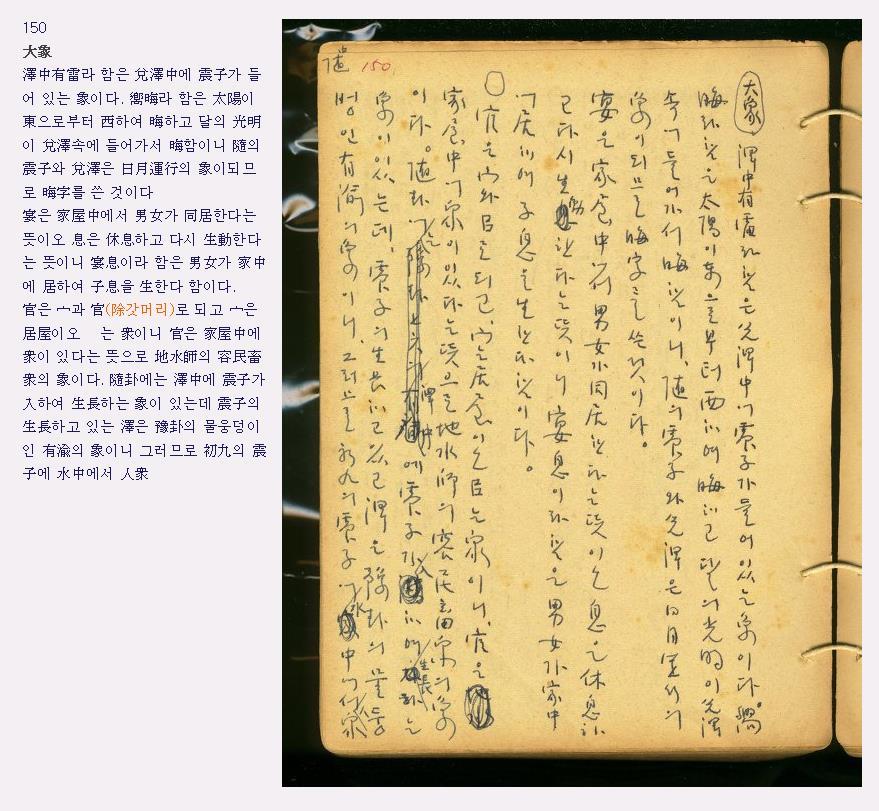 150
大象
澤中有雷라 함은 兌澤中에 震子가 들
어 있는 象이다. 嚮晦라 함은 太陽이
東으로부터 西하여 晦하고 달의 光明
이 兌澤속에 들어가서 晦함이니 隨의
震子와 兌澤은 日月運行의 象이되므
로 晦字를 쓴 것이다
宴은 家屋中에서 男女가 同居한다는
뜻이오 息은 休息하고 다시 生動한다
는 뜻이니 宴息이라 함은 男女가 家中
에 居하여 子息을 生한다 함이다.
官은 宀과 官(除갓머리)로 되고 宀은
居屋이오 는 衆이니 官은 家屋中에
衆이 있다는 뜻으로 地水師의 容民畜
衆의 象이다. 隨卦에는 澤中에 震子가
入하여 生長하는 象이 있는데 震子의
生長하고 있는 澤은 豫卦의 물웅덩이
인 有渝의 象이니 그러므로 初九의 震
子에 水中에서 人衆
隨 150.
大象 澤中有雷라 함은 兌澤中에 震子가 들어 있는 象이다. 嚮
晦라 함은 太陽이 東으로부터 西하여 晦하고 달의 光明이 兌澤
속에 들어가서 晦함이니, 隨의 震子와 兌澤은 日月運行의
象이되므로 晦字를 쓴것이다.
宴은 家屋中에서 男女가 同居한다는 뜻이오 息은 休息하
고 다시 生動한다는 뜻이니 宴息이라 함은 男女가 家中
에 居하여 子息을 生한다 함이다.
官은 宀와 㠯로 되고, 宀는 居屋이오 㠯는 衆이니, 官은
家屋中에 衆이 있다는 뜻으로 地水師의 容民畜衆의 象
이다. 隨卦에는 澤中에 震子가 入하여 生長하는
象이 있는데, 震子의 生長하고 있는 澤은 豫卦의 물웅
덩이인 有渝의 象이니, 그러므로 初九의 震子에 水中에서 人衆